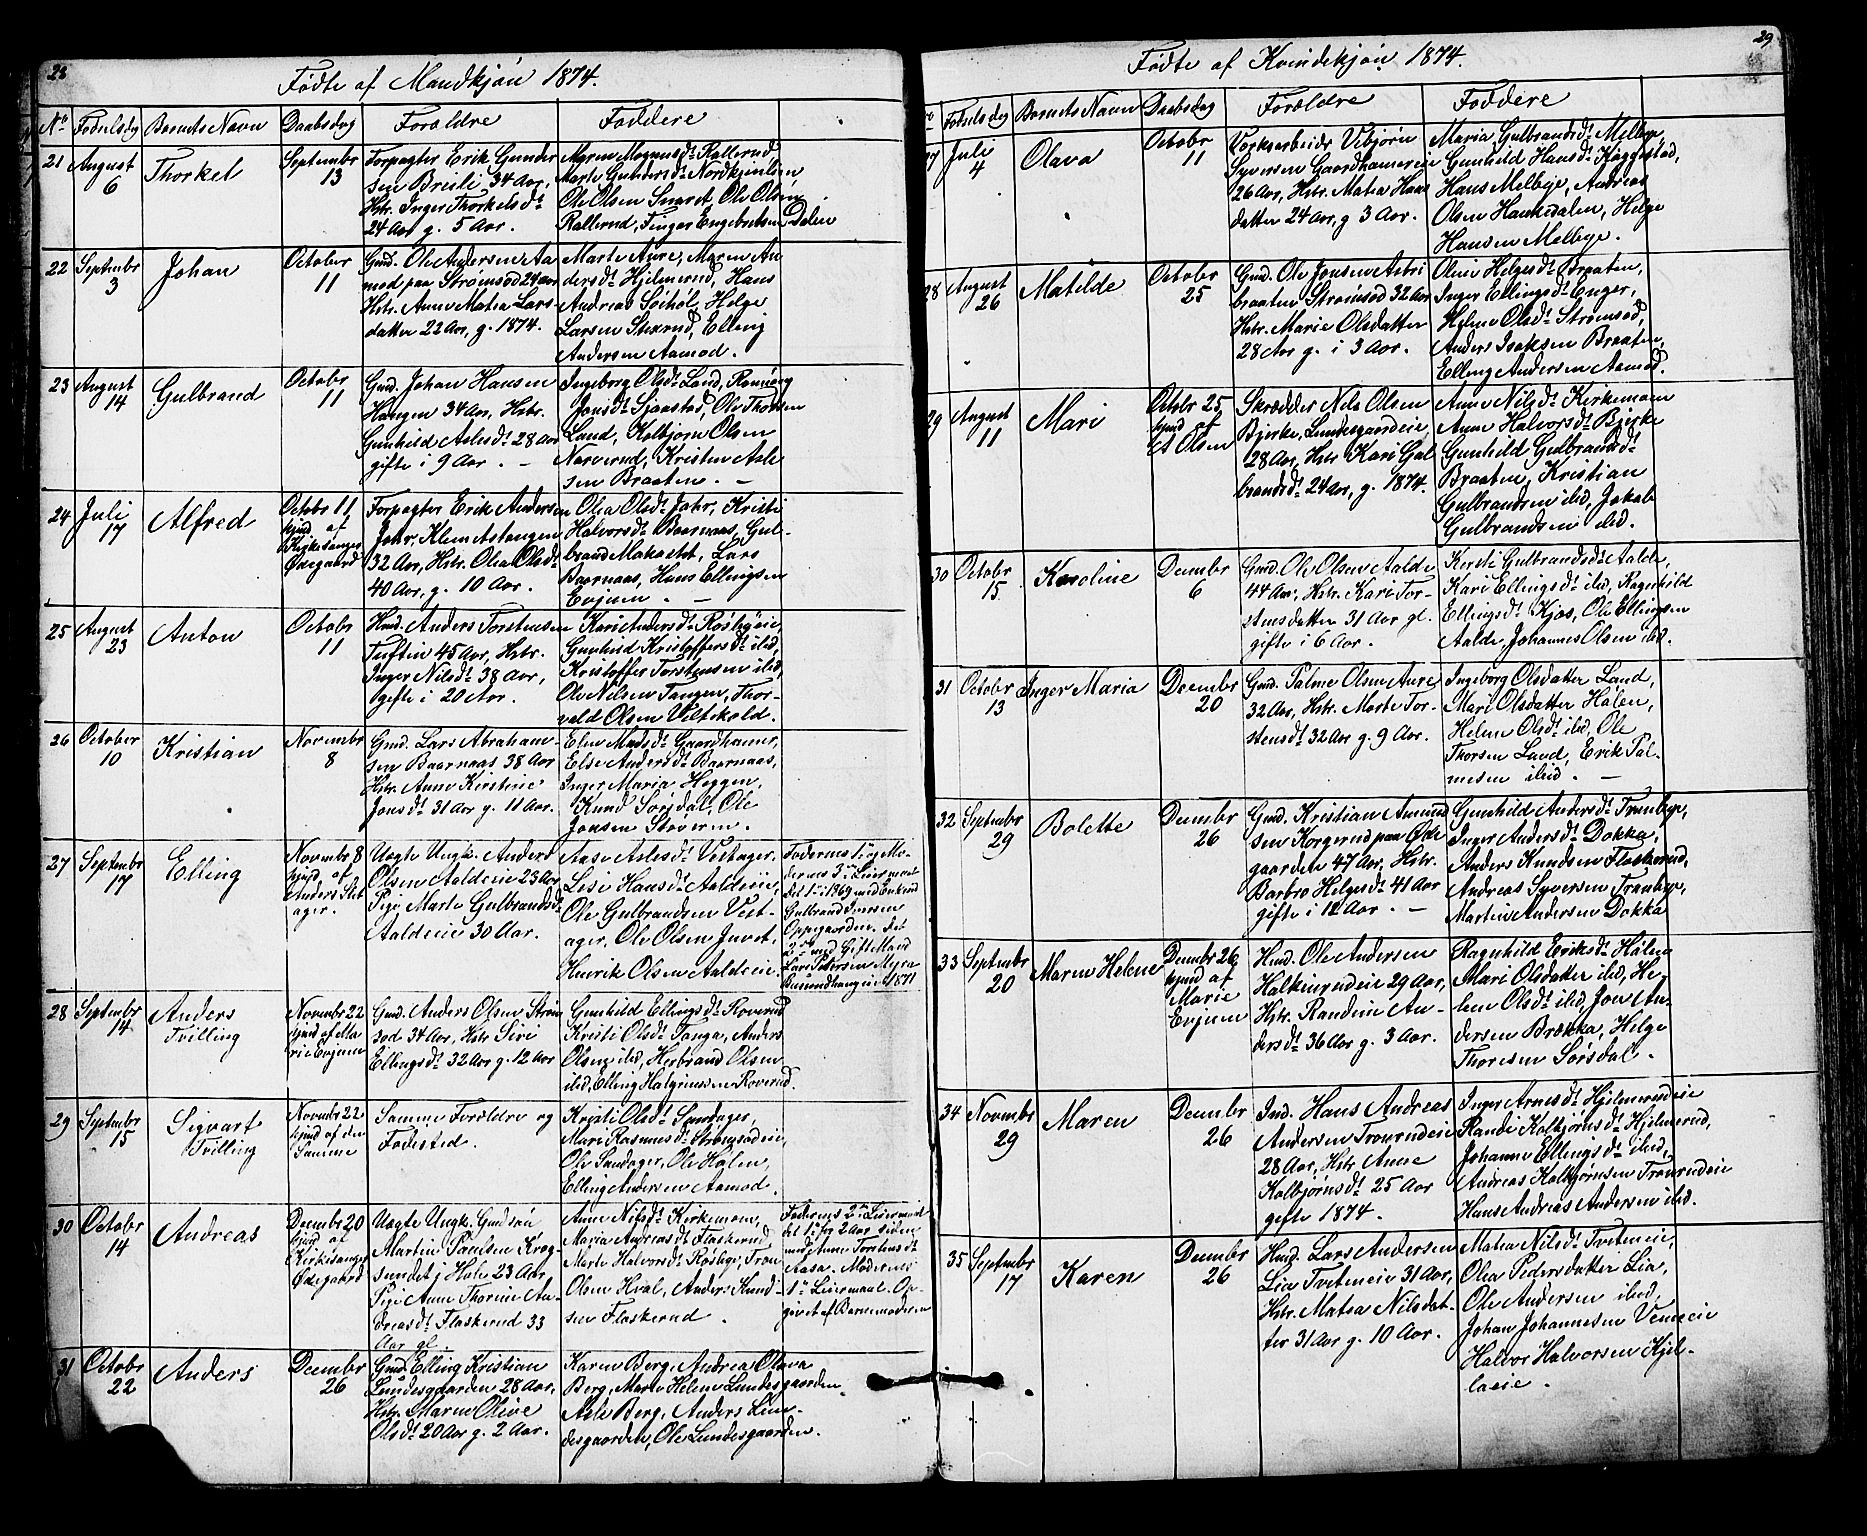 28
Fødte af Mandkjøn 1874.
No Fødselsdg Barnets Navn Daabsdag Forældre Faddere
21 August 6 Thorkel Septembr 13
Forpagter Erik Gunder
sen Breili 34 Aar,
Hstr. Inger Thorkelsdt
24 Aar g. 5 Aar.
Maren Magnusdt Rallerud
Marte Gulbrdt Nordkjenlsen
Ole Olsen Snaret, Ole Olsen
Rallerud, Finger Engebretsen Dalen
22 Septembr 3 Johan October 11
Gmd. Ole Andersen Aa
mod paa Strømsod 24 aar
Hstr. Anne Matea Lars
datter 22 Aar, g. 1874.
Marte Aure, Maren An
dersdt Hjelmerud, Hans
Andreas Seihol, Helge
Larsen Skærud, Elling
Andersen Aamod.
23 August 14 Gulbrand Octobr 11
Gmd. Johan Hansen
Haugen 34 Aar, Hstr.
Gunhild Aslesdt 28 aar
gifte i 9 Aar. –
Ingeborg Olsdt Land, Rønnaug
Jonsdt Sjaastad, Ole Thorsen
Land, Kolbjørn Olsen
Narverud, Kristen Asle
sen Braaten. –
24 Juli 17 Alfred Octobr 11
hjmd. af
Kirkesanger
Ødegaard
Forpagter Erik Andersen
Jahr, Klemetstangen
32 Aar, Hstr. Olea Olsdt
40 Aar, g. 10 Aar.
Olea Olsdt Jahr, Kristi
Halvorsdt Baarnaas, Gul-
brand Makastet, Lars
Baarnaas, Hans Ellingsen
Evjuen. –
25 August 23 Anton Octobr 11
Hmd. Anders Torstensen
Tuften 45 Aar, Hstr.
Inger Nilsdt 38 Aar,
gifte i 20 Aar.
Kari Andersdt Røsbyeie
Gunhild Kristoffersdt ibid,
Kristoffer Torstensen ibid,
Ole Nilsen Tangen, Thor-
vald Olsen Viltikold.
26 October 10 Kristian Novembr 8
Gmd. Lars Abraham-
sen Baarnaas 38 Aar
Hstr. Anne Kirstine
Jonsdt 31 Aar g. 11 Aar.
Elen Madsdt Gaardhamer,
Else Andersdt Baarnaas,
Inger Maria Heggen,
Knud Sørsdal, Ole
Jonsen Støveren.
27 Septembr 17 Elling Novembr 8
hjmd. af
Anders Vest
ager.
Uægte Ungk. Anders
Olsen Aaldeie 23 Aar
Pige Marte Gulbrandsdt
Aaldeeie 30 Aar.
Aase Aslesdt Vestager,
Lisi Hansdt Aaldeie,
Ole Gulbrandsen Vest-
ager, Ole Olsen Juvet,
Henrik Olsen Aaldeie
Faderens 1te og Mo-
derens 3die Leiermaal
det 1te i 1869 med Enkmd
Gulbrand Iversen
Oppegaarden. det
2det med Gift Mand
Lars Pedersen Myra
Buaundhaugen 1871
28 Septembr 14 Anders Tvilling Novembr 22
hjmd af Ma
rie Evjuen
Gmd. Anders Olsen Strøm
sod 34 Aar, Hstr Siri
Ellingsdt 32 Aar g. 12 Aar
Gunhild Ellingsdt Roverud
Kristi Olsdt Tanga, Anders
Olsen ibid, Herbrand Olsen
ibid, Elling Halgrimsen Roverud.
29 Septembr 15 Sigvart Tvilling Novembr 22
hjmd af den
Samme
Samme Forældre og
Fødested.
Kristi Olsdt Sandager,
Mari Rasmusdt Strømsodeie,
Ole Sandager, Ole Hølen,
Elling Andersen Aamod.
30 Octobr 14 Andreas Decembr 20
hjmd. af
Kirkesanger
Ødegaard
Uægte Ungk. Gmdsøn
Martin Paulsen Krog
sundet i Hole 23 Aar
Pige Anne Thorine An
dreasdt Flaskerud 33
Aar gl.
Anne Nilsdt Kirkemoen,
Maria Andreasdt Flaskerud
Marte Halvorsdt Røsbye, Tron
Olsen Hval, Anders Knud-
sen Flaskerud.
Faderens 2det Leiermaal
det 1te for 2 Aar siden
med Anne Torstensdt
Aasa. Moderens
1te Leiermaal. Op-
givet af Barnemoderen
31 Octobr 22 Anders Decembr 26
Gmd. Elling Kristian
Lundesgaarden 28 Aar,
Hstr. Maren Oleve
Olsdt 20 Aar g. 2 Aar.
Karen Berg, Andrea Olava
Berg, Marte Helene Lundesgaarden.
Asle Berg, Anders Lun-
desgaarden, Ole Lundesgaarden.
29
Fødte af Kvindekjøn 1874.
No Fødselsdg Barnets Navn Daabsdag Forældre Faddere
27 Juli 4 Olava October 11
Værksarbeidr Vebjørn
Syversen Gaardhamereie
26 Aar, Hstr. Matea Hans
datter 24 Aar, g 3 Aar.
Maria Gulbrandsdt Melbye,
Gunhild Hansdt Kaggestad,
Hans Melbye, Andreas
Olsen Hankedalen, Helge
Hansen Melbye.
28 August 26 Matilde October 25
Gmd. Ole Jonsen Astri
braaten Strømsod 32 Aar
Hstr. Marie Olsdatter
28 Aar g. i 3 Aar.
Oline Helgesdt Braaten,
Inger Ellingsdt Enger,
Helene Olsdt Strømsod,
Anders Isaksen Braaten,
Elling Andersen Aamod.
29 August 11 Mari Octobr 25
hjmd af
A Olsen
Skrædder Nils Olsen
Bjerke, Lundesgaardeie
28 Aar, Hstr Kari Gul
brandsdt 24 Aar, g. 1874.
Anne Nilsdt Kirkemoen
Anne Halvorsdt Bjerke
Gunhild Gulbrandsdt
Braaten, Kristian
Gulbrandsen ibid, Jakob
Gulbrandsen ibid.
30 Octobr 15 Karoline Decembr 6
Gmd. Ole Olsen Aalde
44 Aar, Hstr. Kari Tor-
stensdatter 31 Aar gl.
gifte i 6 Aar.
Kersti Gulbrandsdt Aalde,
Kari Ellingsdt ibid, Ragnhild
Ellingsdt Kjos, Ole Ellingsen
Aalde, Johannes Olsen ibid.
31 Octobr 13 Inger Maria Decembr 20
Gmd. Palme Olsen Aure
32 Aar, Hstr. Marte Tor-
stensdt 32 Aar g. 9 Aar.
Ingeborg Olsdatter Land,
Mari Olsdatter Hølen,
Helene Olsdt ibid, Ole
Thorsen Land, Erik Pal-
mesen ibid. –
32 Septembr 29 Bolette Decembr 26
Gmd. Kristian Amund
sen Korgerud paa Øde
gaarden 47 Aar, Hstr.
Barbro Helgesdt 41 Aar
gifte i 12 Aar. –
Gunhild Andersdt Tranbye,
Inger Andersdt Dokka,
Anders Knudsen Flaskerud,
Andreas Syversen Tranbye,
Martin Andersen Dokka
33 Septembr 20 Maren Helene Decembr 26
hjmd af
Marie
Evjuen
Hmd. Ole Andersen
Halkinrudeie 29 Aar,
Hstr. Randine An-
dersdt 36 Aar g. 3 Aar.
Ragnhild Eriksdt Hølen
Mari Olsdatter ibid, He-
lene Olsdt ibid, Jon An-
dersen Brækka, Helge
Thoresen Sørsdal.
34 Novembr 29 Maren Decembr 26
Ind. Hans Andreas
Andersen Tronrudeie
28 Aar, Hstr Anne
Kolbjørnsdt 25 Aar
gifte 1874.
Inger Arnesdt Hjelmerudeie
Randi Kolbjørnsdt Hjelmerud,
Johanne Ellingsdt ibid,
Andreas Kolbjørnsen Tronrudeie
Hans Andreas Andersen ibid.
35 Septembr 17 Karen Decembr 26
Hmd. Lars Andersen
Lia Tveteneie 31 Aar,
Hstr. Matea Nilsdat-
ter 31 Aar g. 10 Aar.
Matea Nilsdt Tveteneie,
Olea Pedersdatter Lia,
Ole Andersen ibid,
Johan Johannesen Vemeeie
Halvor Halvorsen Kjøl-
laeie.